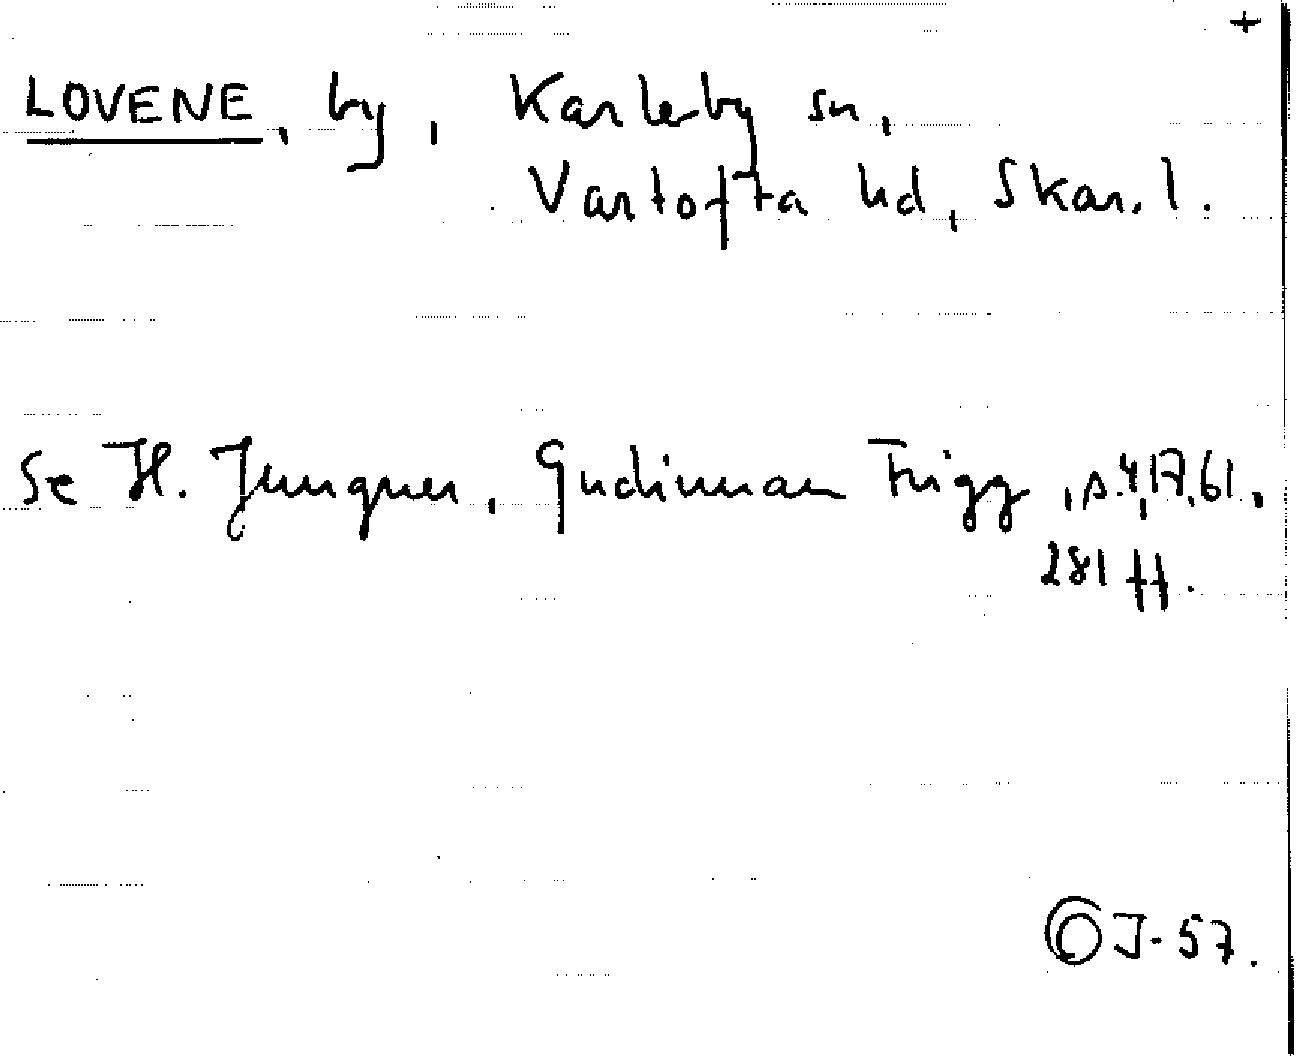 +
LOVENE, by, Karleby sn,
Vartofta hd, Skar. l.
Se H. Jungner, Gudinnan Frigg, s. 4, 17, 61,
281 ff.
J-57.